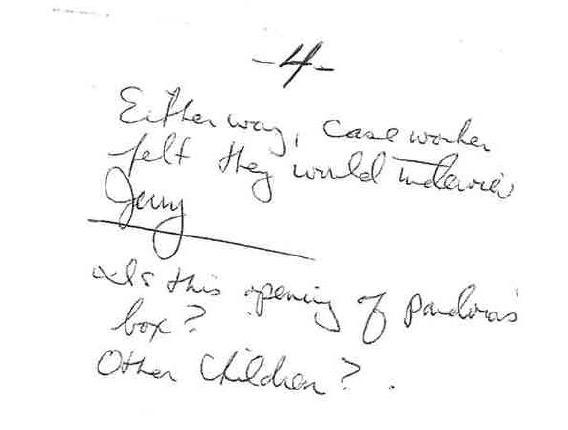 -4-
Either way, case worker
felt they would interview
Jerry
Is this opening of pandora's
box?
Other Children?